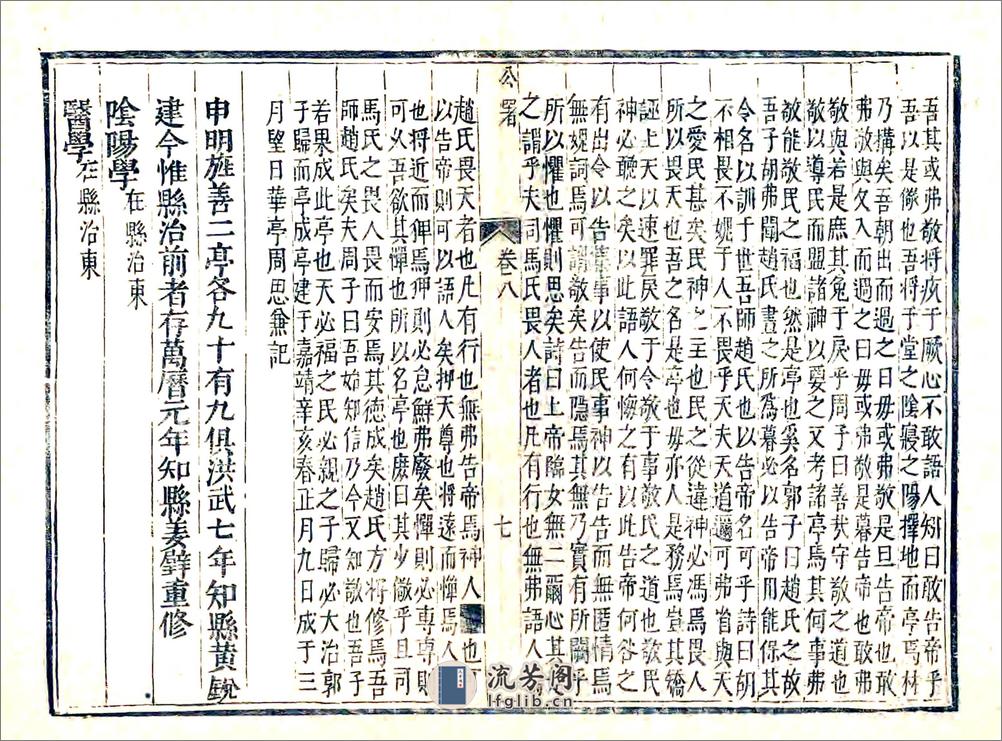 吾其或弗敬將疚于厥心不敢語人矧曰敢告帝乎
吾以是像也吾將于堂之陰寢之陽擇地而亭焉材
乃構矣吾朝出而過之曰毋或弗敬是旦告帝也敢
弗敬與夕入而過之曰毋或弗敬是暮告帝也敢弗
敬與若是庶其兔于戾乎周子曰善㢤守敬之道也
敬以導民而盟諸神以要之又考諸亭焉其何事弗
敬能敬民之福也然是亭也奚名郭子曰趙氏之故
吾子胡弗聞趙氏晝之所爲暮必以告帝用能保其
令名以訓于世吾師趙氏也以告帝名可乎詩曰胡
不相畏不媿于人不畏乎天夫天道邇可弗省與天
之愛民甚矣民神之主也民之從違神必馮焉畏人
所以畏天也吾之名是亭也毋亦人是務焉豈其矯
誣上天以速罪戾敬于令敬于事敬民之道也敬
神必聽之矣以此語人何怍之有以此告帝何咎之
有出令以告羣事以使民事神以告告而無匿情焉
無媿詞焉可謂敬矣告而隱焉其無乃實有所闕乎
所以懼也懼則思矣詩曰上帝臨女無二爾心其
之謂乎夫司馬氏畏人者也凡有行也無弗語人
公署
卷八
七
趙氏畏天者也凡有行也無弗告帝焉神人也
以告帝則可以語人矣抑天尊也將遠而憚焉人
也將近而狎焉狎則必怠鮮弗廢矣憚則必專專則
可久吾欲其憚也所以名亭也廢曰其少儆乎且司
馬氏之畏人畏而安焉其德成矣趙氏方將修焉吾
師趙氏矣夫周子曰吾始知信乃今又知敬也吾子
若果成此亭也天必福之民必親之子歸必大治郭
子歸而亭成亭建于嘉靖辛亥春正月九日成于三
月望日華亭周思兼記
申明旌善二亭各九十有九俱洪武七年知縣黃銳
建今惟縣治前者存萬曆元年知縣姜璧重修
陰陽學在縣治東
醫學在縣治東
流芳閣
lfglib.cn